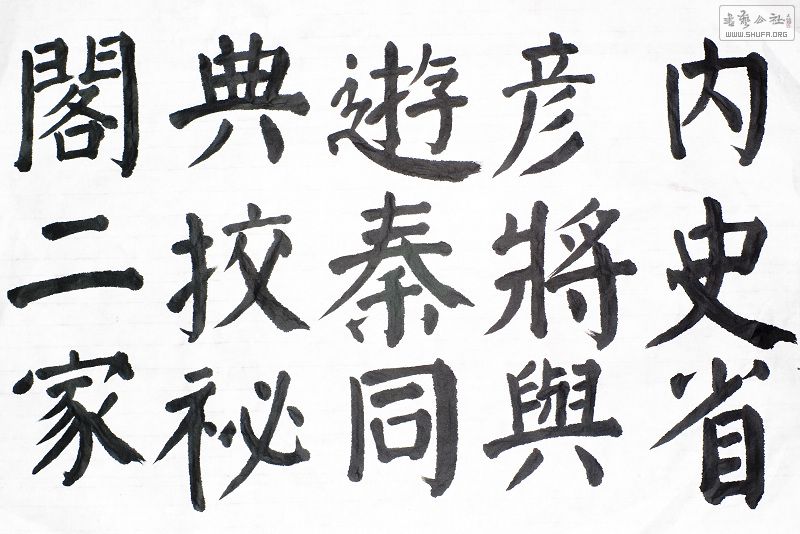 内史省
彦將與
遊秦同
典挍祕
閣二家
书艺公社
WWW.SHUFA.ORG